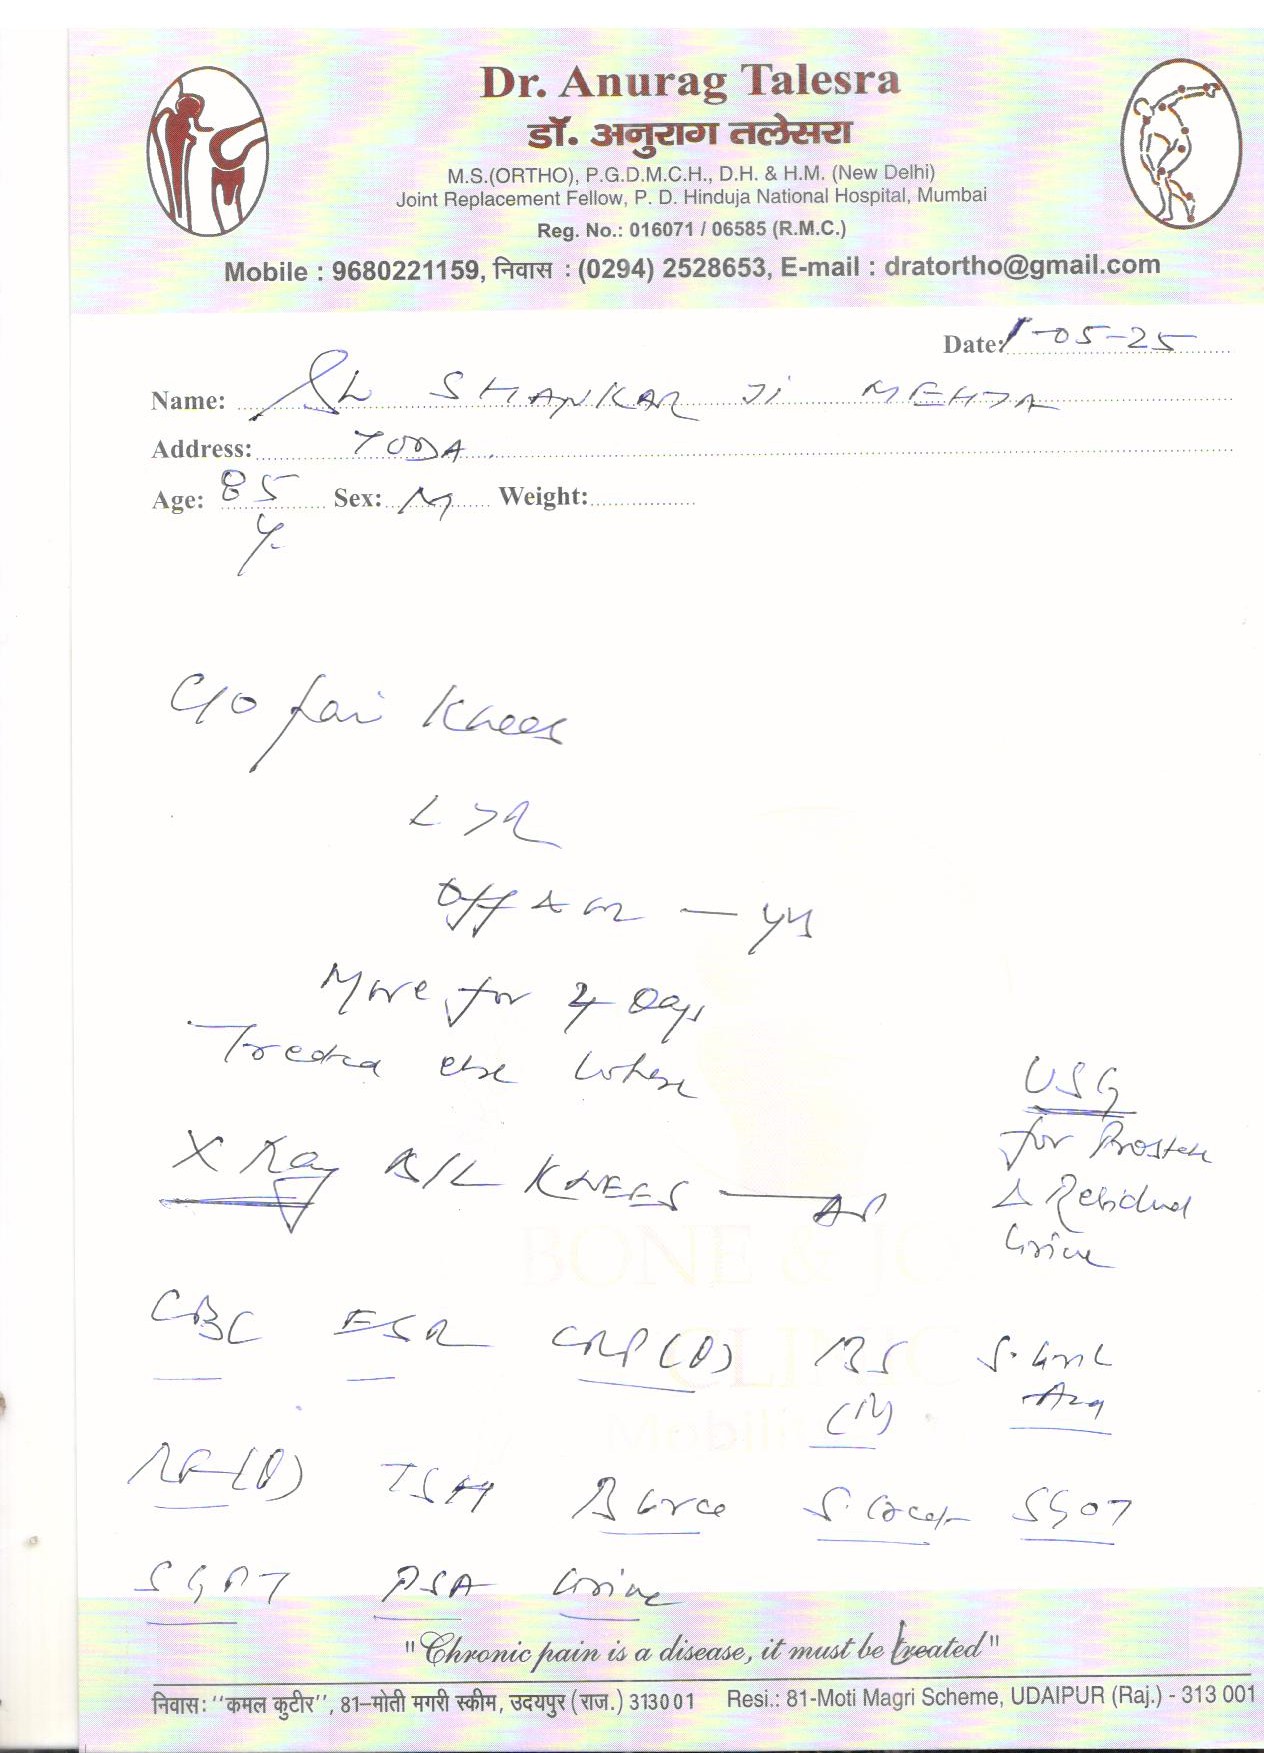 Dr. Anurag Talesra
डॉ. अनुराग तलेसरा
M.S.(ORTHO), P.G.D.M.C.H., D.H. & H.M. (New Delhi)
Joint Replacement Fellow, P. D. Hinduja National Hospital, Mumbai
Reg. No.: 016071 / 06585 (R.M.C.)
Mobile : 9680221159, निवास : (0294) 2528653, E-mail : dratortho@gmail.com
Date: 1-05-25
Name: SHANKAR Ji MEHTA
Address: TODA
Age: 85 Sex: M Weight:
Y.
C/O Pain Knees
L > R
Off & on — yrs
More for 4 Days
Treated else where
USG
for Prostate
& Residual
Urine
X Ray B/L KNEES — AP
BONE & JO
CLINIC
Mobili
CBC ESR CRP (Q) BS S. Uric
(R) Acid
RF (Q) TSH B Urea S. Creat SGOT
SGPT PSA Urine
"Chronic pain is a disease, it must be treated"
निवास: ‘‘कमल कुटीर’’, 81–मोती मगरी स्कीम, उदयपुर (राज.) 313001 Resi.: 81-Moti Magri Scheme, UDAIPUR (Raj.) - 313 001